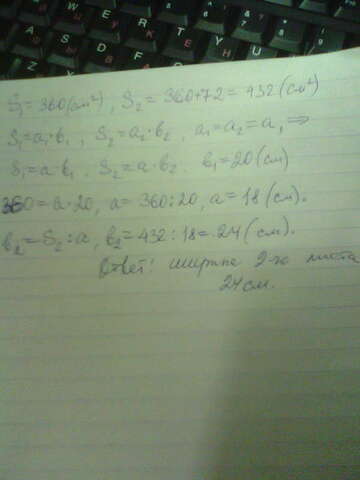 S₁=360(см²), S₂=360+72=432(см²)
S₁=a₁·b₁, S₂=a₂·b₂, a₁=a₂=a, ⇒
S₁=a·b₁, S₂=a·b₂. b₁=20(см)
360=a·20, a=360:20, a=18(см).
b₂=S₂:a, b₂=432:18=24(см).
Ответ: ширина 2-го листа
24см.